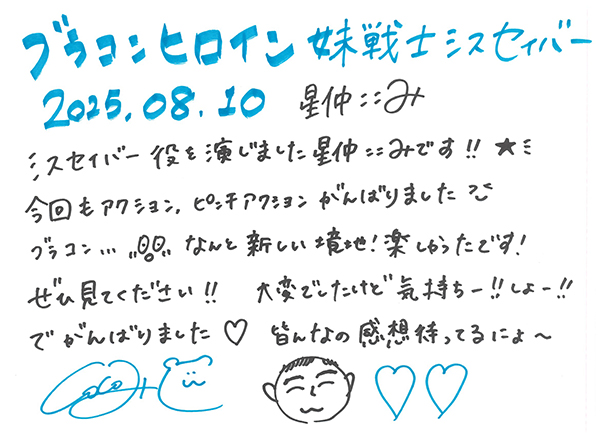 ブラコンヒロイン 妹戦士ミスセイバー
2025.08.10 星仲ここみ
ミスセイバー役を演じました星仲ここみです!!★ミ
今回もアクション,ピンチアクションがんばりました
ブラコン… なんと新しい境地!楽しかったです!
ぜひ見てください!! 大変でしたけど気持ちー!!しょー!!
でがんばりました♡ 皆んなの感想待ってるにょ〜